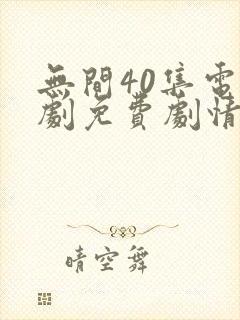 無間40集電
劇免費劇情
晴空舞